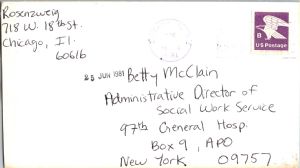 Rosenzweig
718 W. 18th St.
Chicago, Il.
60616
B
US Postage
25 JUN 1981
Betty McClain
Administrative Director of
Social Work Service
97th General Hosp.
Box 9, APO
New York 09757